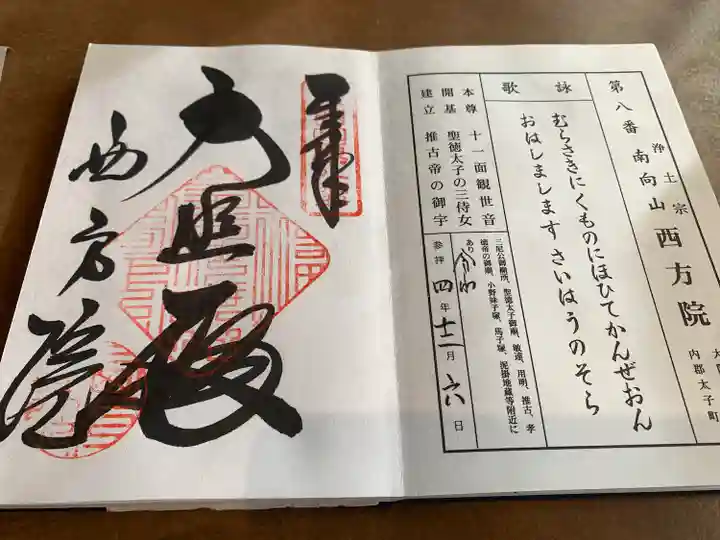 第八番 浄土宗 南向山 西方院
内郡太子町
詠歌
むらさきにくものにほひてかんぜおん
おはしましますさいはうのそら
本尊 十一面観世音
開基 聖徳太子の三侍女
建立 推古帝の御宇
三尼公御廟所、聖徳太子御廟、敏達、用明、推古、孝
徳帝の御廟、小野妹子塚、馬子塚、泥掛地蔵等附近に
あり
参拝 令和四年十二月六日
奉拝
大悲殿
西方院